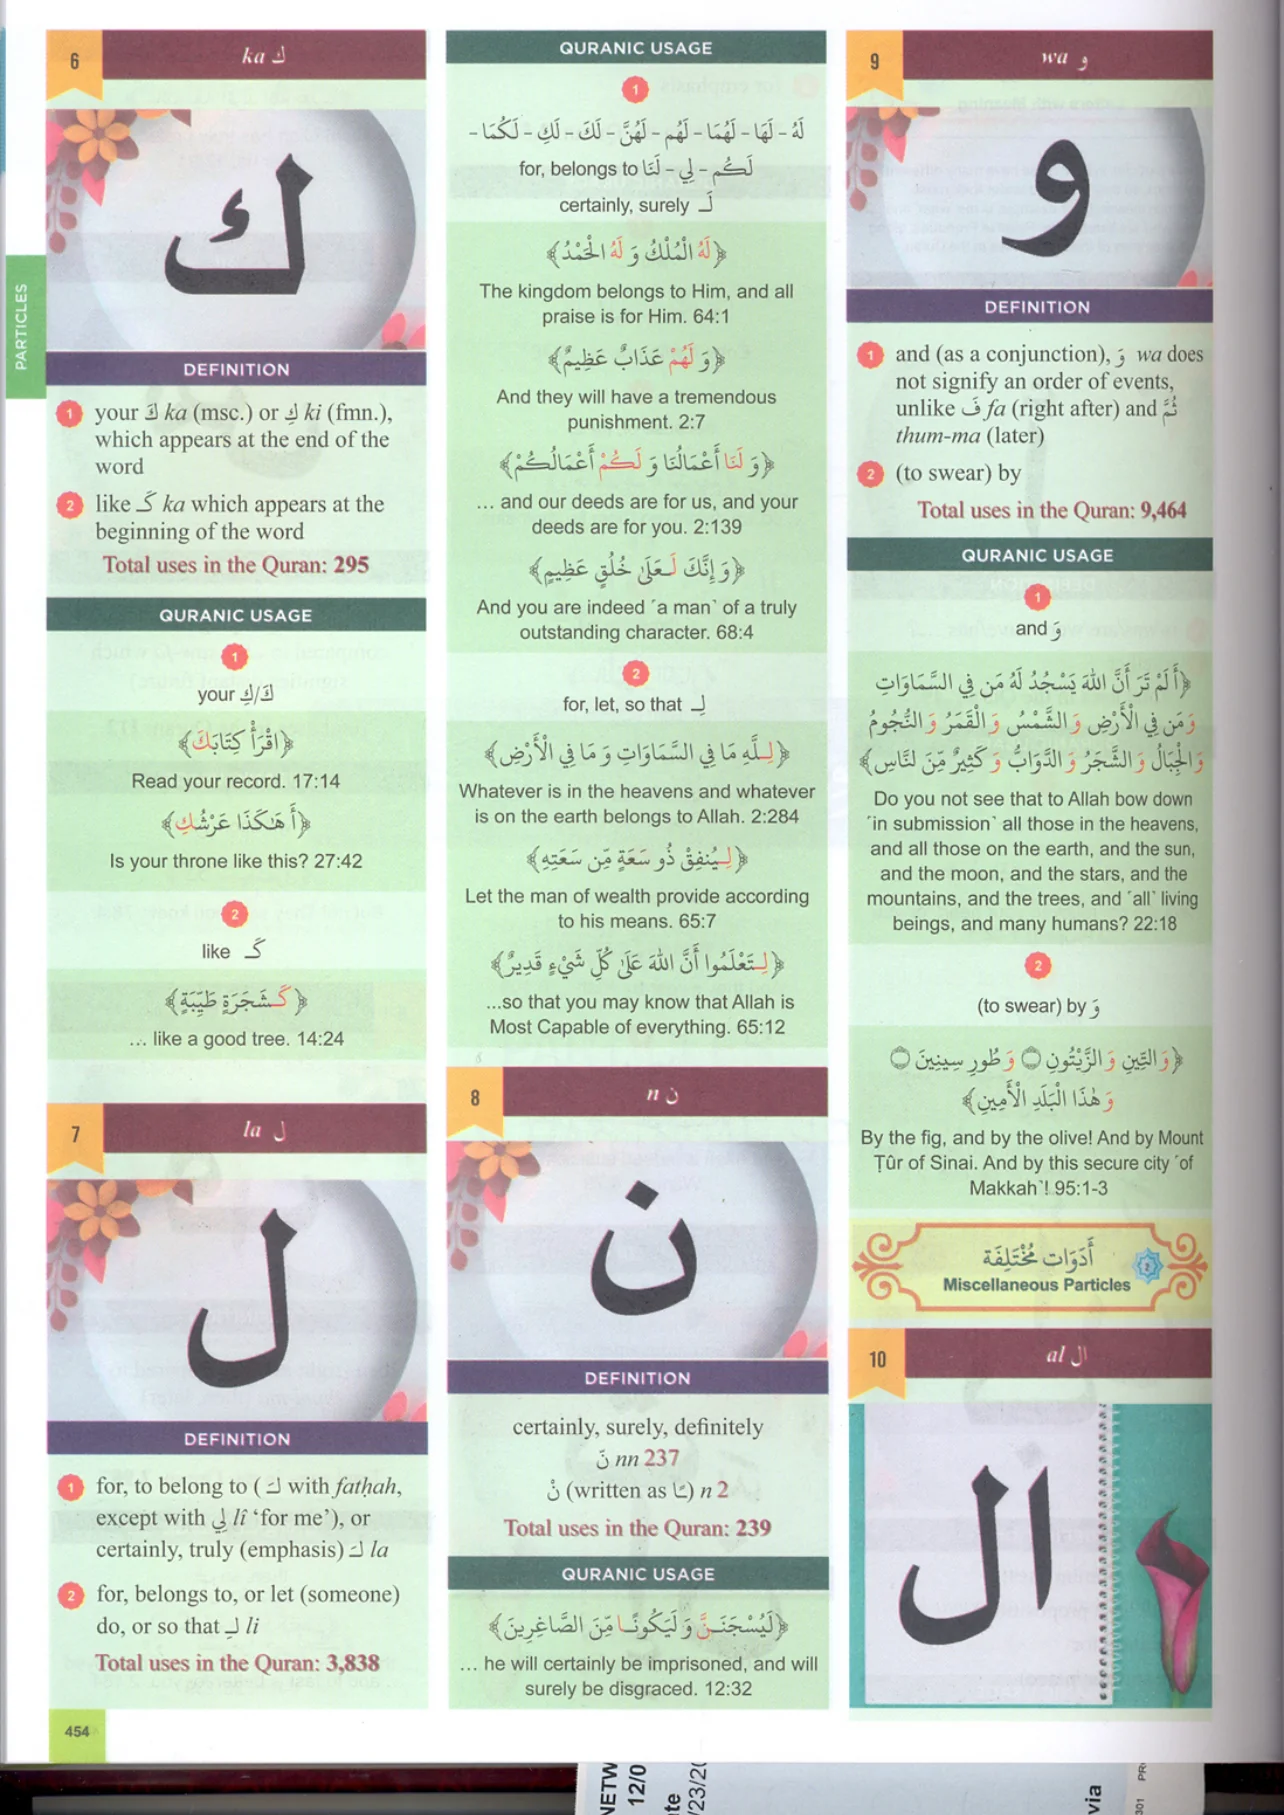 PARTICLES
6
ka ك
ك
DEFINITION
1 your كَ ka (msc.) or كِ ki (fmn.),
which appears at the end of the
word
2 like كَـ ka which appears at the
beginning of the word
Total uses in the Quran: 295
QURANIC USAGE
1
your كَ/كِ
﴿اقْرَأْ كِتَابَكَ﴾
Read your record. 17:14
﴿أَ هَٰكَذَا عَرْشُكِ﴾
Is your throne like this? 27:42
2
like كَـ
﴿كَـشَجَرَةٍ طَيِّبَةٍ﴾
... like a good tree. 14:24
7
la ل
ل
DEFINITION
1 for, to belong to (لَـ with fatḥah,
except with لِي lî ‘for me’), or
certainly, truly (emphasis) لَـ la
2 for, belongs to, or let (someone)
do, or so that لِـ li
Total uses in the Quran: 3,838
454
QURANIC USAGE
1
لَهُ - لَهَا - لَهُمَا - لَهُم - لَهُنَّ - لَكَ - لَكِ - لَكُمَا -
for, belongs to لَكُم - لِي - لَنَا
certainly, surely لَـ
﴿لَهُ الْمُلْكُ وَ لَهُ الْحَمْدُ﴾
The kingdom belongs to Him, and all
praise is for Him. 64:1
﴿وَ لَهُمْ عَذَابٌ عَظِيمٌ﴾
And they will have a tremendous
punishment. 2:7
﴿وَ لَنَا أَعْمَالُنَا وَ لَكُمْ أَعْمَالُكُمْ﴾
... and our deeds are for us, and your
deeds are for you. 2:139
﴿وَ إِنَّكَ لَـعَلَىٰ خُلُقٍ عَظِيمٍ﴾
And you are indeed ´a man` of a truly
outstanding character. 68:4
2
for, let, so that لِـ
﴿لِـلَّهِ مَا فِي السَّمَاوَاتِ وَ مَا فِي الْأَرْضِ﴾
Whatever is in the heavens and whatever
is on the earth belongs to Allah. 2:284
﴿لِـيُنفِقْ ذُو سَعَةٍ مِّن سَعَتِهِ﴾
Let the man of wealth provide according
to his means. 65:7
﴿لِـتَعْلَمُوا أَنَّ اللهَ عَلَىٰ كُلِّ شَيْءٍ قَدِيرٌ﴾
...so that you may know that Allah is
Most Capable of everything. 65:12
8
n ن
ن
DEFINITION
certainly, surely, definitely
نَّ nn 237
نْ (written as ـًا) n 2
Total uses in the Quran: 239
QURANIC USAGE
﴿لَيُسْجَنَـنَّ وَ لَيَكُونًـا مِّنَ الصَّاغِرِينَ﴾
... he will certainly be imprisoned, and will
surely be disgraced. 12:32
9
wa و
و
DEFINITION
1 and (as a conjunction), وَ wa does
not signify an order of events,
unlike فَ fa (right after) and ثُمَّ
thum-ma (later)
2 (to swear) by
Total uses in the Quran: 9,464
QURANIC USAGE
1
and وَ
﴿أَ لَمْ تَرَ أَنَّ اللهَ يَسْجُدُ لَهُ مَن فِي السَّمَاوَاتِ
وَ مَن فِي الْأَرْضِ وَ الشَّمْسُ وَ الْقَمَرُ وَ النُّجُومُ
وَ الْجِبَالُ وَ الشَّجَرُ وَ الدَّوَابُّ وَ كَثِيرٌ مِّنَ النَّاسِ﴾
Do you not see that to Allah bow down
´in submission` all those in the heavens,
and all those on the earth, and the sun,
and the moon, and the stars, and the
mountains, and the trees, and ´all` living
beings, and many humans? 22:18
2
(to swear) by وَ
﴿وَ التِّينِ وَ الزَّيْتُونِ ۝ وَ طُورِ سِينِينَ ۝
وَ هَٰذَا الْبَلَدِ الْأَمِينِ﴾
By the fig, and by the olive! And by Mount
Ṭûr of Sinai. And by this secure city ´of
Makkah`! 95:1-3
أَدَوَات مُخْتَلِفَة
Miscellaneous Particles
2
10
al ال
ال
NETW
12/0
te
/23/20
via
301 PR